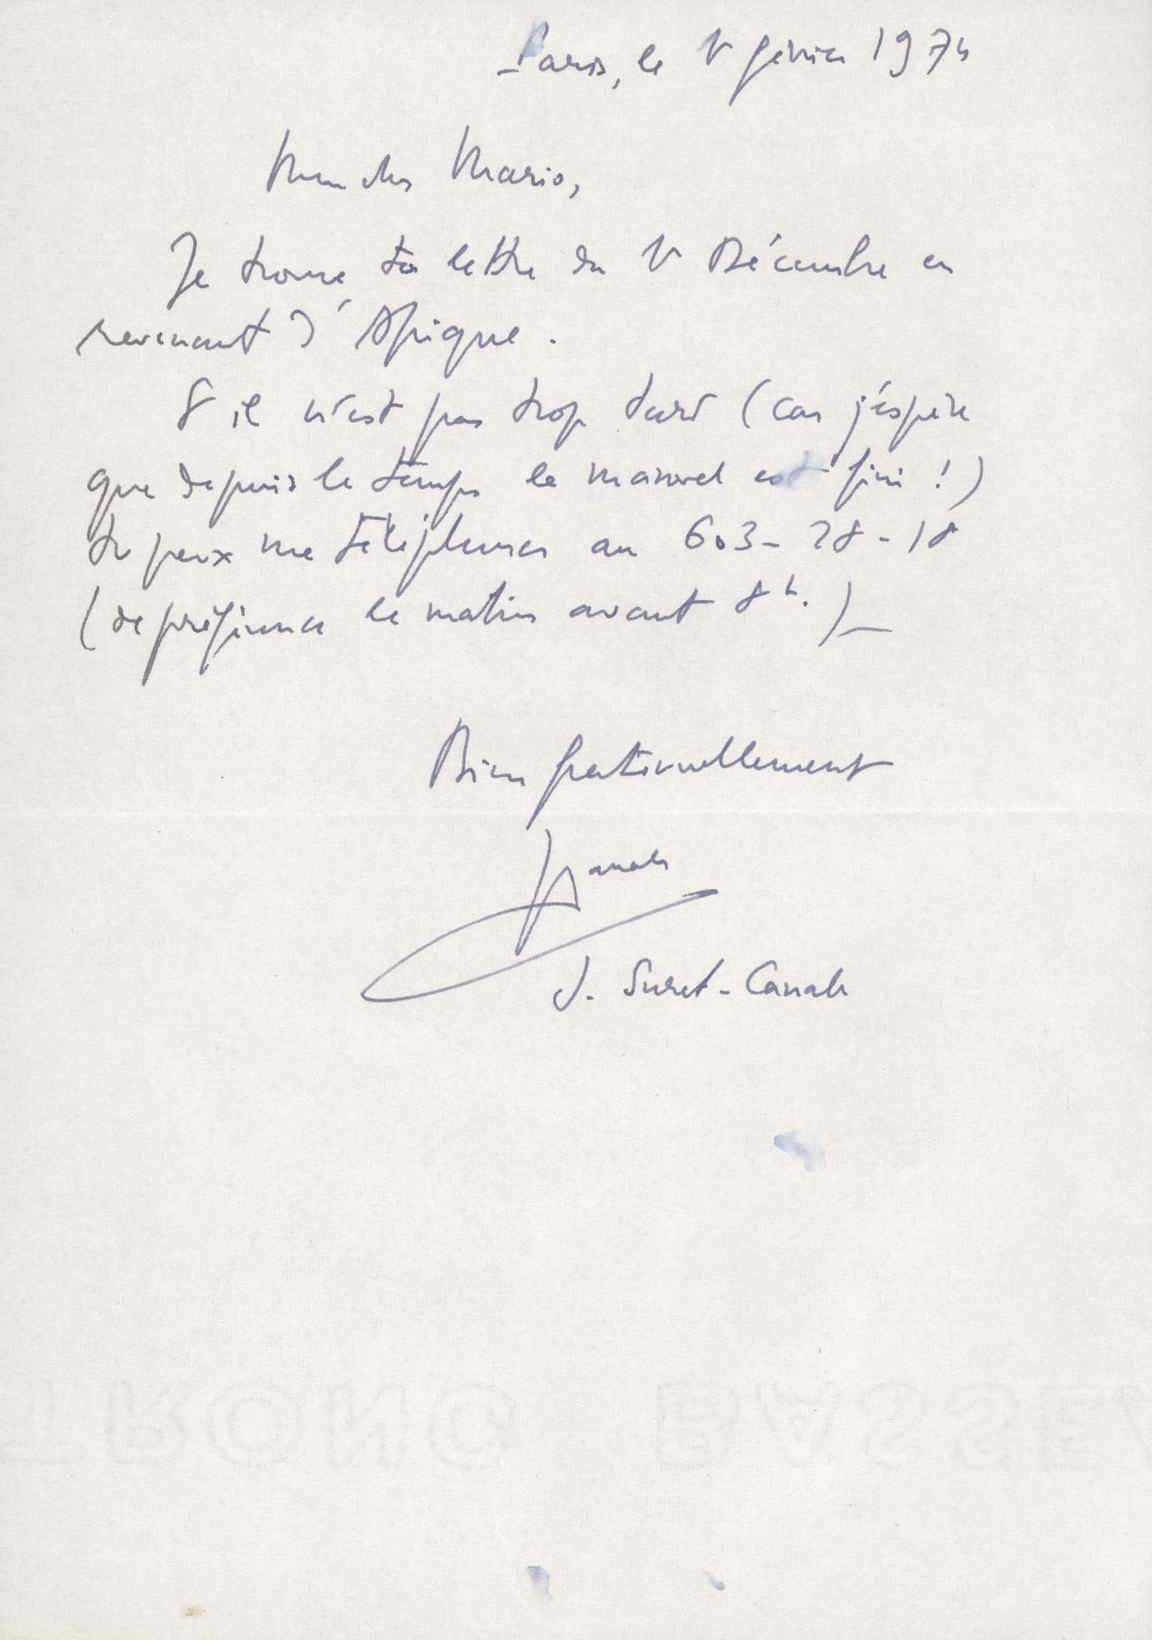 Paris, le 1er février 1974
Mon cher Mario,
Je trouve ta lettre du 1er Décembre en
revenant d'Afrique.
S'il n'est pas trop tard (car j'éspère
que depuis le temps le manuel est fini !)
tu peux me téléphoner au 603-28-18
(de préférence le matin avant 8h.)_
Bien fraternellement
JSCanale
J. Suret-Canale